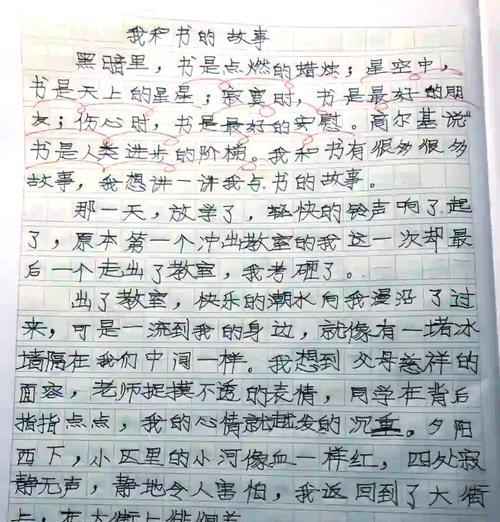 我和书的故事
黑暗里，书是点燃的蜡烛；星空中，
书是天上的星星；寂寞时，书是最好的朋
友；伤心时，书是最好的安慰。高尔基说“
书是人类进步的阶梯。我和书有很多很多
故事，我想讲一讲我与书的故事。
那一天，放学了，轻快的铃声响了起
了，原本第一个冲出教室的我这一次却最
后一个走出了教室，我考砸了。
出了教室，快乐的潮水向我漫沿了过
来，可是一流到我的身边，就像有一堵冰
墙隔在我们中间一样。我想到父母慈祥的
面容，老师捉摸不透的表情，同学在背后
指指点点，我的心情就越发的沉重。夕阳
西下，小区里的小河像血一样红，四处寂
静无声，静地令人害怕，我返回到了大街
上，在大街上徘徊着